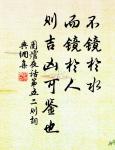 不镜於水
而镜於人
则吉凶可鉴也
围炉夜话第五二则词
典网集